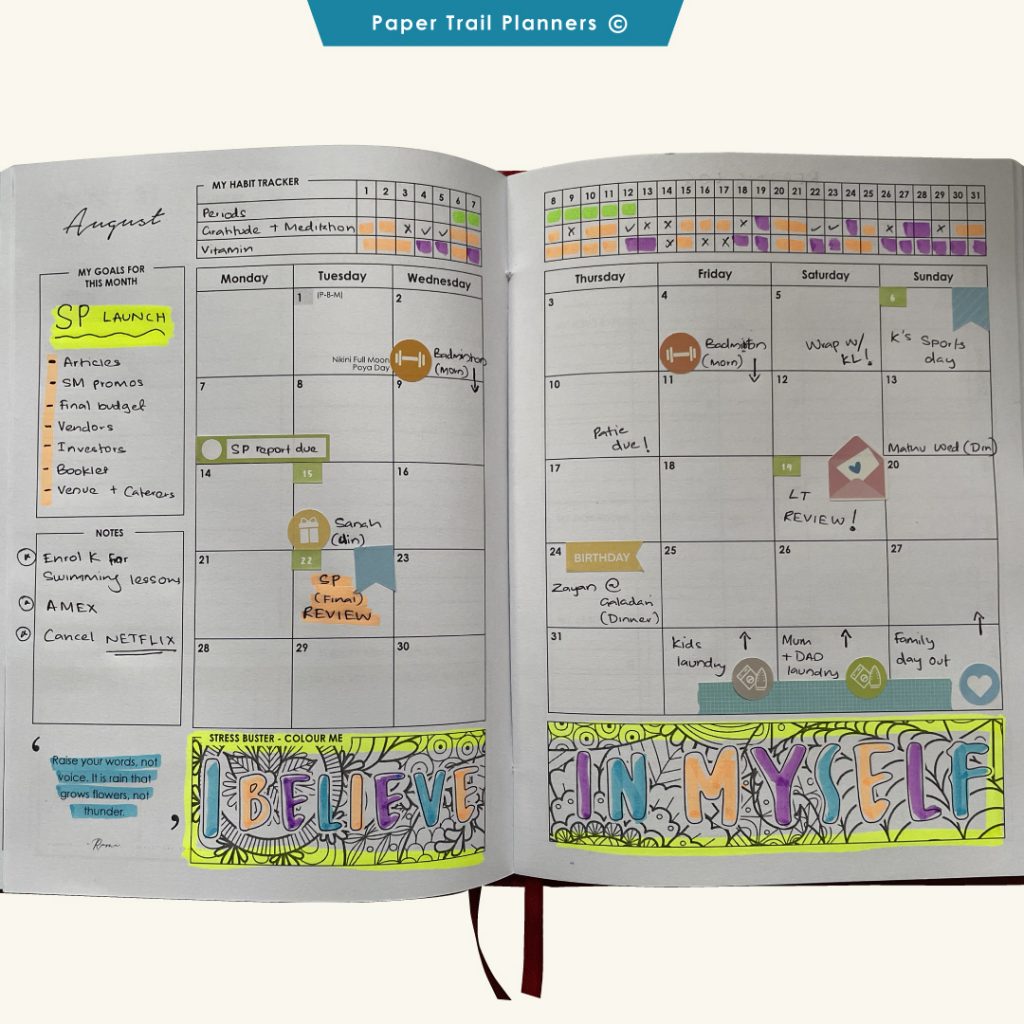 Paper Trail Planners ©
August
MY HABIT TRACKER
1 2 3 4 5 6 7
8 9 10 11 12 13 14 15 16 17 18 19 20 21 22 23 24 25 26 27 28 29 30 31
Periods
Gratitude + Meditation
Vitamin
MY GOALS FOR
THIS MONTH
SP LAUNCH
- Articles
- SM promos
- Final budget
- Vendors
- Investors
- Booklet
- Venue + Caterers
NOTES
Enrol K for
Swimming lessons
AMEX
Cancel NETFLIX
‘
Raise your words, not
voice. It is rain that
grows flowers, not
thunder.
’
- Rumi
Monday Tuesday Wednesday
1 (P-B-M)
Nikini Full Moon
Poya Day
2
Badminton
(morn) ↓
7
SP report due
8
9
14
15
Sanah
(din)
16
21
22
SP
(Final)
REVIEW
23
28
29
30
Thursday Friday Saturday Sunday
3
4
Badminton
(morn) ↓
5
Wrap w/
KL!
6
K's Sports
day
10
Patie
due!
11
12
13
Mathu Wed (Din)
17
18
19
LT
REVIEW!
20
24
BIRTHDAY
Zayan @
Galadari
(Dinner)
25
26
27
31
Kids ↑
laundry
Mum ↑
+ DAD
laundry
Family ↑
day out
STRESS BUSTER - COLOUR ME
I BELIEVE
IN MYSELF